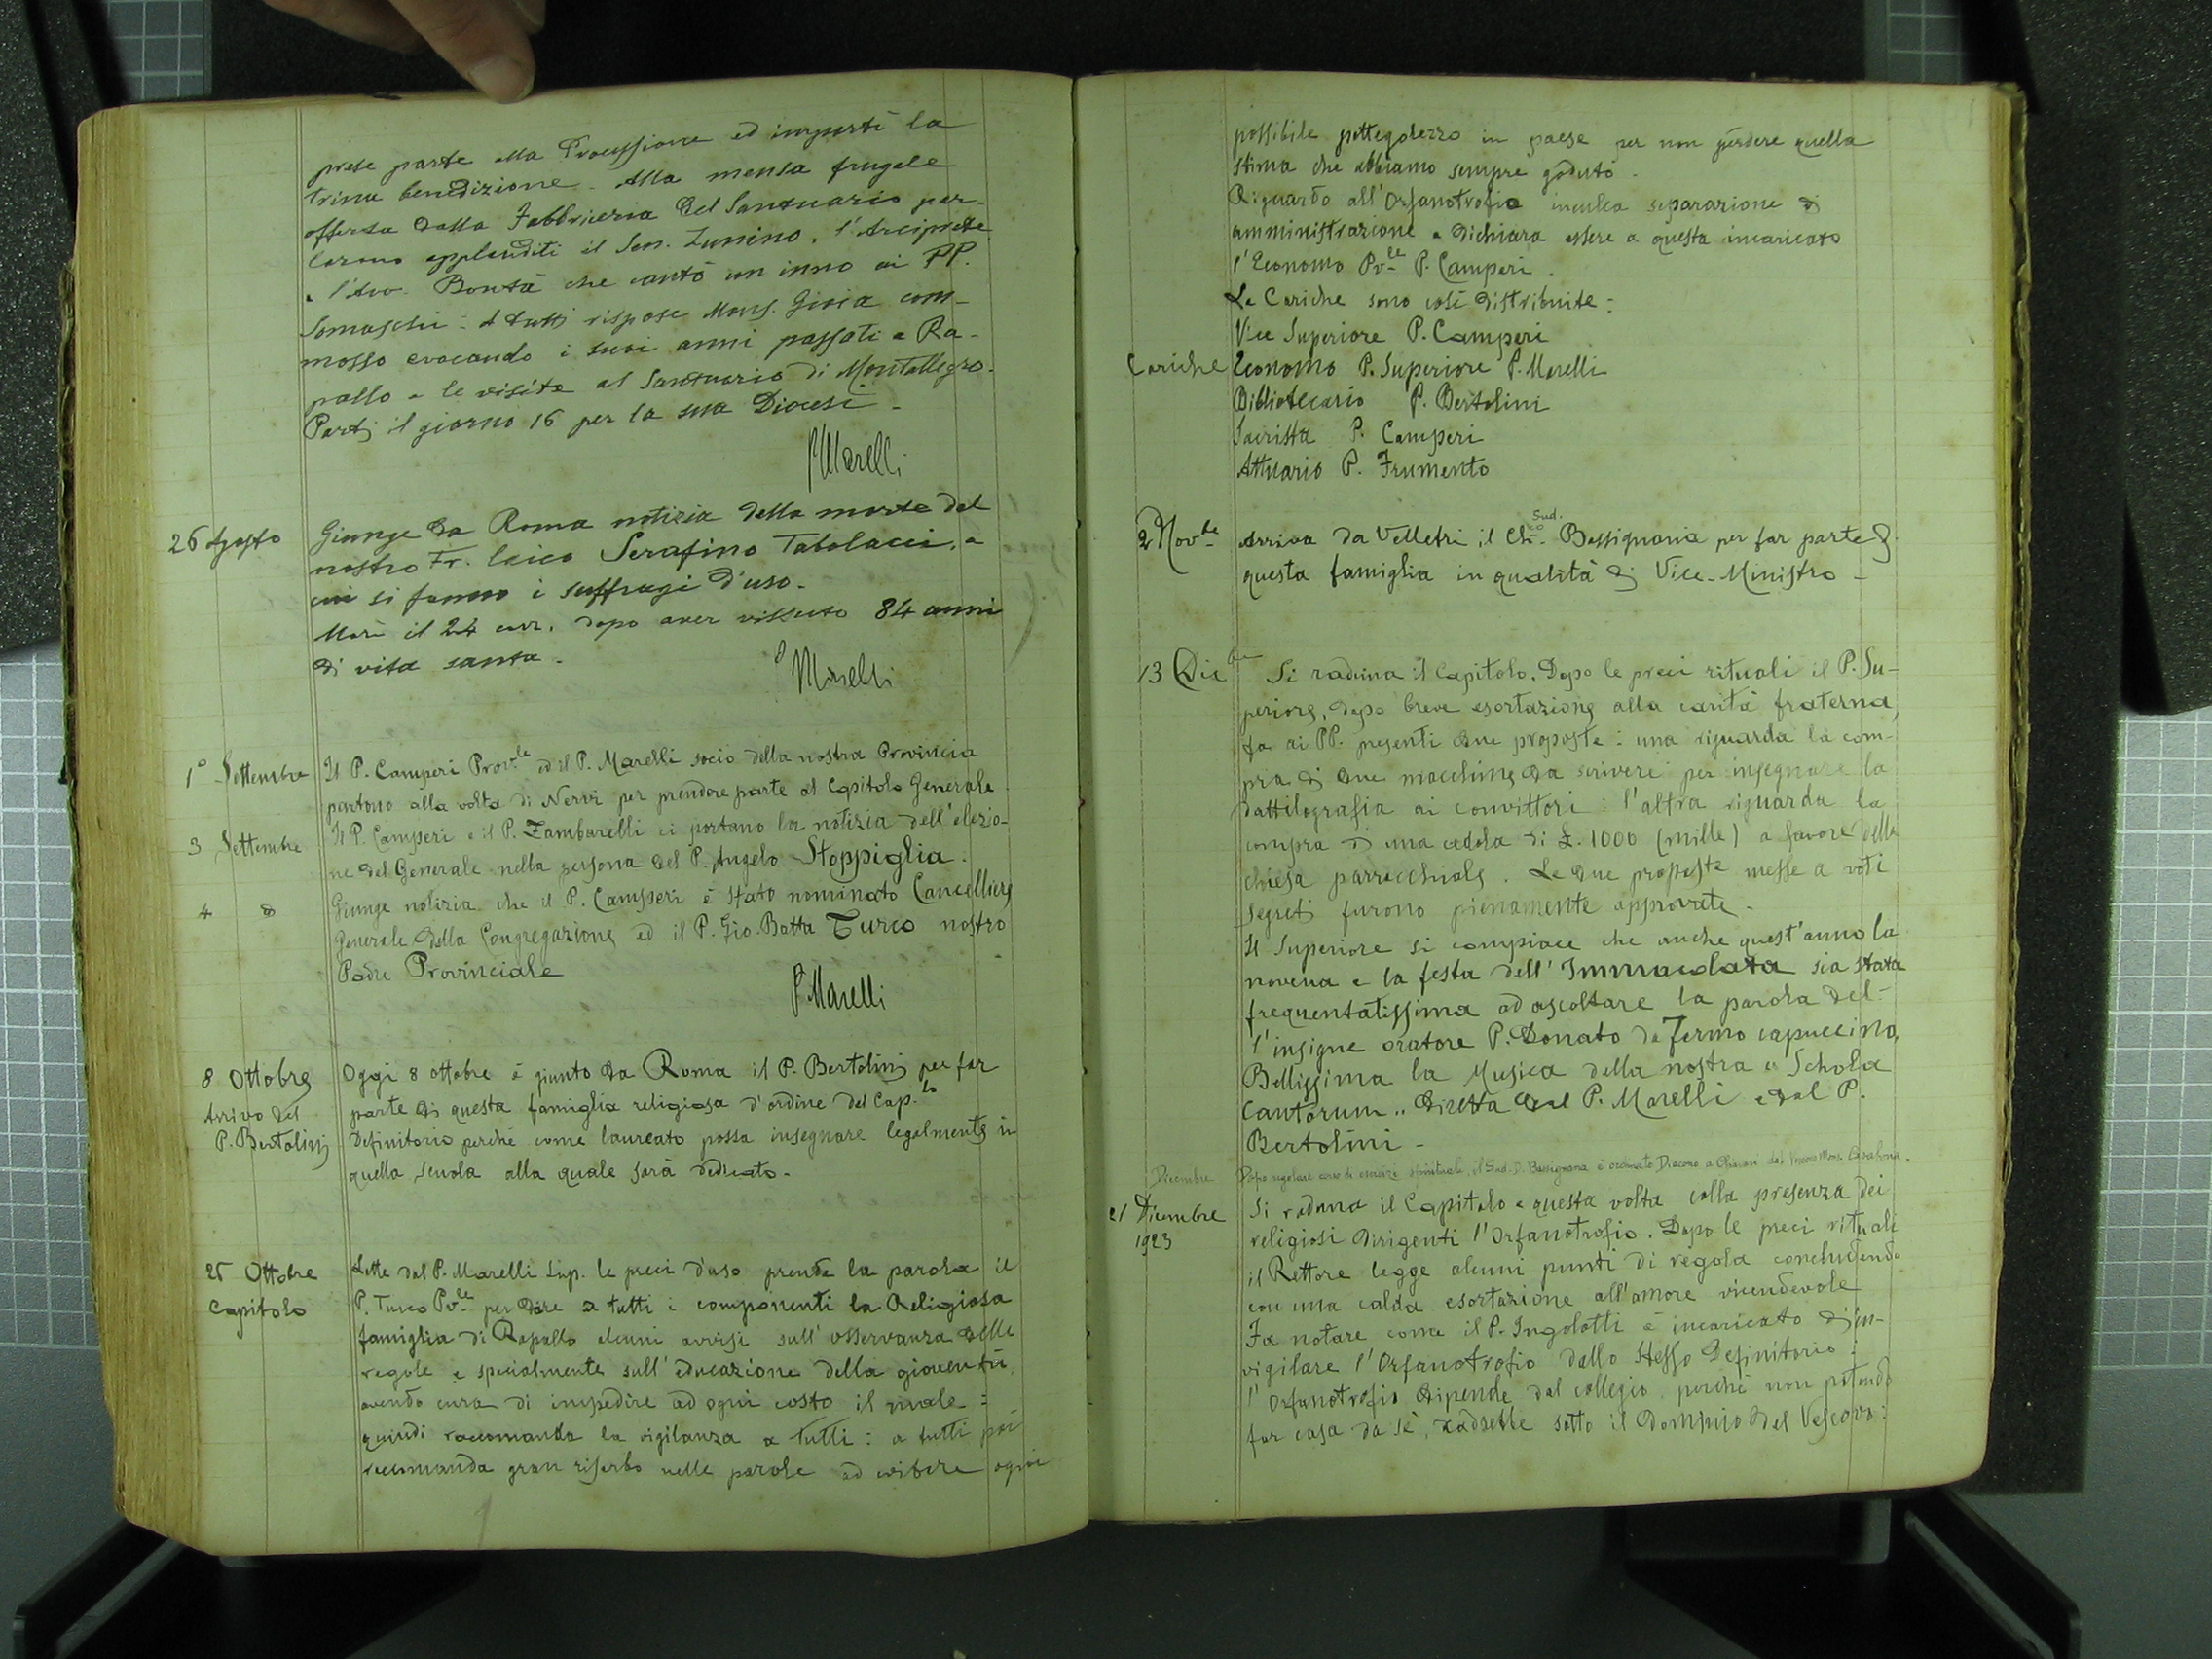 prese parte alla Processione ed impartì la
trina benedizione. Alla mensa frugale
offerta dalla Fabbriceria del Santuario par-
larono applauditi il Sen. Zunino, l'Arciprete
e l'Avv. Bontà che cantò un inno ai PP.
Somaschi: A tutti rispose Mons. Gioia com-
mosso evocando i suoi anni passati a Ra-
pallo e le visite al Santuario di Montallegro.
Partì il giorno 16 per la sua Diocesi -
P Marelli
26 Agosto
Giunge da Roma notizia della morte del
nostro Fr. laico Serafino Tabolacci, a
cui si fanno i suffragi d'uso.
Morì il 24 corr. dopo aver vissuto 84 anni
di vita santa.
P Marelli
1° Settembre
Il P. Camperi Prov.le ed il P. Marelli socio della nostra Provincia
partono alla volta di Nervi per prendere parte al Capitolo Generale
3 Settembre
Il P. Camperi e il P. Zambarelli ci portano la notizia dell'elezio-
ne del Generale nella persona del P. Angelo Stoppiglia.
4 "
Giunge notizia che il P. Camperi è stato nominato Cancelliere
Generale della Congregazione ed il P. Gio. Batta Turco nostro
Padre Provinciale
P. Marelli
8 Ottobre
Arrivo del
P. Bertolini
Oggi 8 ottobre è giunto da Roma il P. Bertolini per far
parte di questa famiglia religiosa d'ordine del Cap.lo
Definitorio perchè come laureato possa insegnare legalmente in
quella scuola alla quale sarà dedicato.
25 Ottobre
Capitolo
Lette dal P. Marelli Sup. le preci d'uso prende la parola il
P. Turco Pv.le per dare a tutti i componenti la Religiosa
famiglia di Rapallo alcuni avvisi sull'osservanza delle
regole e specialmente sull'educazione della gioventù
avendo cura di impedire ad ogni costo il male:
quindi raccomanda la vigilanza a tutti: a tutti poi
raccomanda gran riserbo nelle parole ad evitare ogni
possibile pettegolezzo in paese per non perdere quella
stima che abbiamo sempre goduto.
Riguardo all'Orfanotrofio inculca separazione di
amministrazione e dichiara essere a questa incaricato
l'Economo Pv.le P. Camperi.
Le Cariche sono così distribuite:
Vice Superiore P. Camperi
Cariche
Economo P. Superiore P. Marelli
Bibliotecario P. Bertolini
Sacrista P. Camperi
Attuario P. Frumento
2 Nov.bre
Sud.
Arriva da Velletri il Ch.co Bassignana per far parte di
questa famiglia in qualità di Vice-Ministro -
13 Dic.
Si raduna il Capitolo. Dopo le preci rituali il P. Su-
periore, dopo breve esortazione alla carità fraterna,
fa ai PP. presenti due proposte: una riguarda la com-
pra di due macchine da scrivere per insegnare la
dattilografia ai convittori: l'altra riguarda la
compra di una cedola di £. 1000 (mille) a favore della
chiesa parrocchiale. Le due proposte messe a voti
segreti furono pienamente approvate.
Il Superiore si compiace che anche quest'anno la
novena e la festa dell'Immacolata sia stata
frequentatissima ad ascoltare la parola del-
l'insigne oratore P. Donato da Fermo capuccino,
Bellissima la Musica della nostra "Schola
Cantorum" diretta dal P. Marelli e dal P.
Bertolini -
Dicembre
Dopo regolare corso di esercizi spirituali, il Sud. D. Bassignana è ordinato Diacono a Chiavari dal Vescovo Mons. Casabona.
21 Dicembre
1923
Si raduna il Capitolo e questa volta colla presenza dei
religiosi dirigenti l'Orfanotrofio. Dopo le preci rituali
il Rettore legge alcuni punti di regola concludendo
con una calda esortazione all'amore vicendevole
Fa notare come il P. Ingolotti è incaricato di in-
vigilare l'Orfanotrofio dallo stesso Definitorio:
l'Orfanotrofio dipende dal collegio, perchè non potendo
far casa da sè, cadrebbe sotto il dominio del Vescovo: